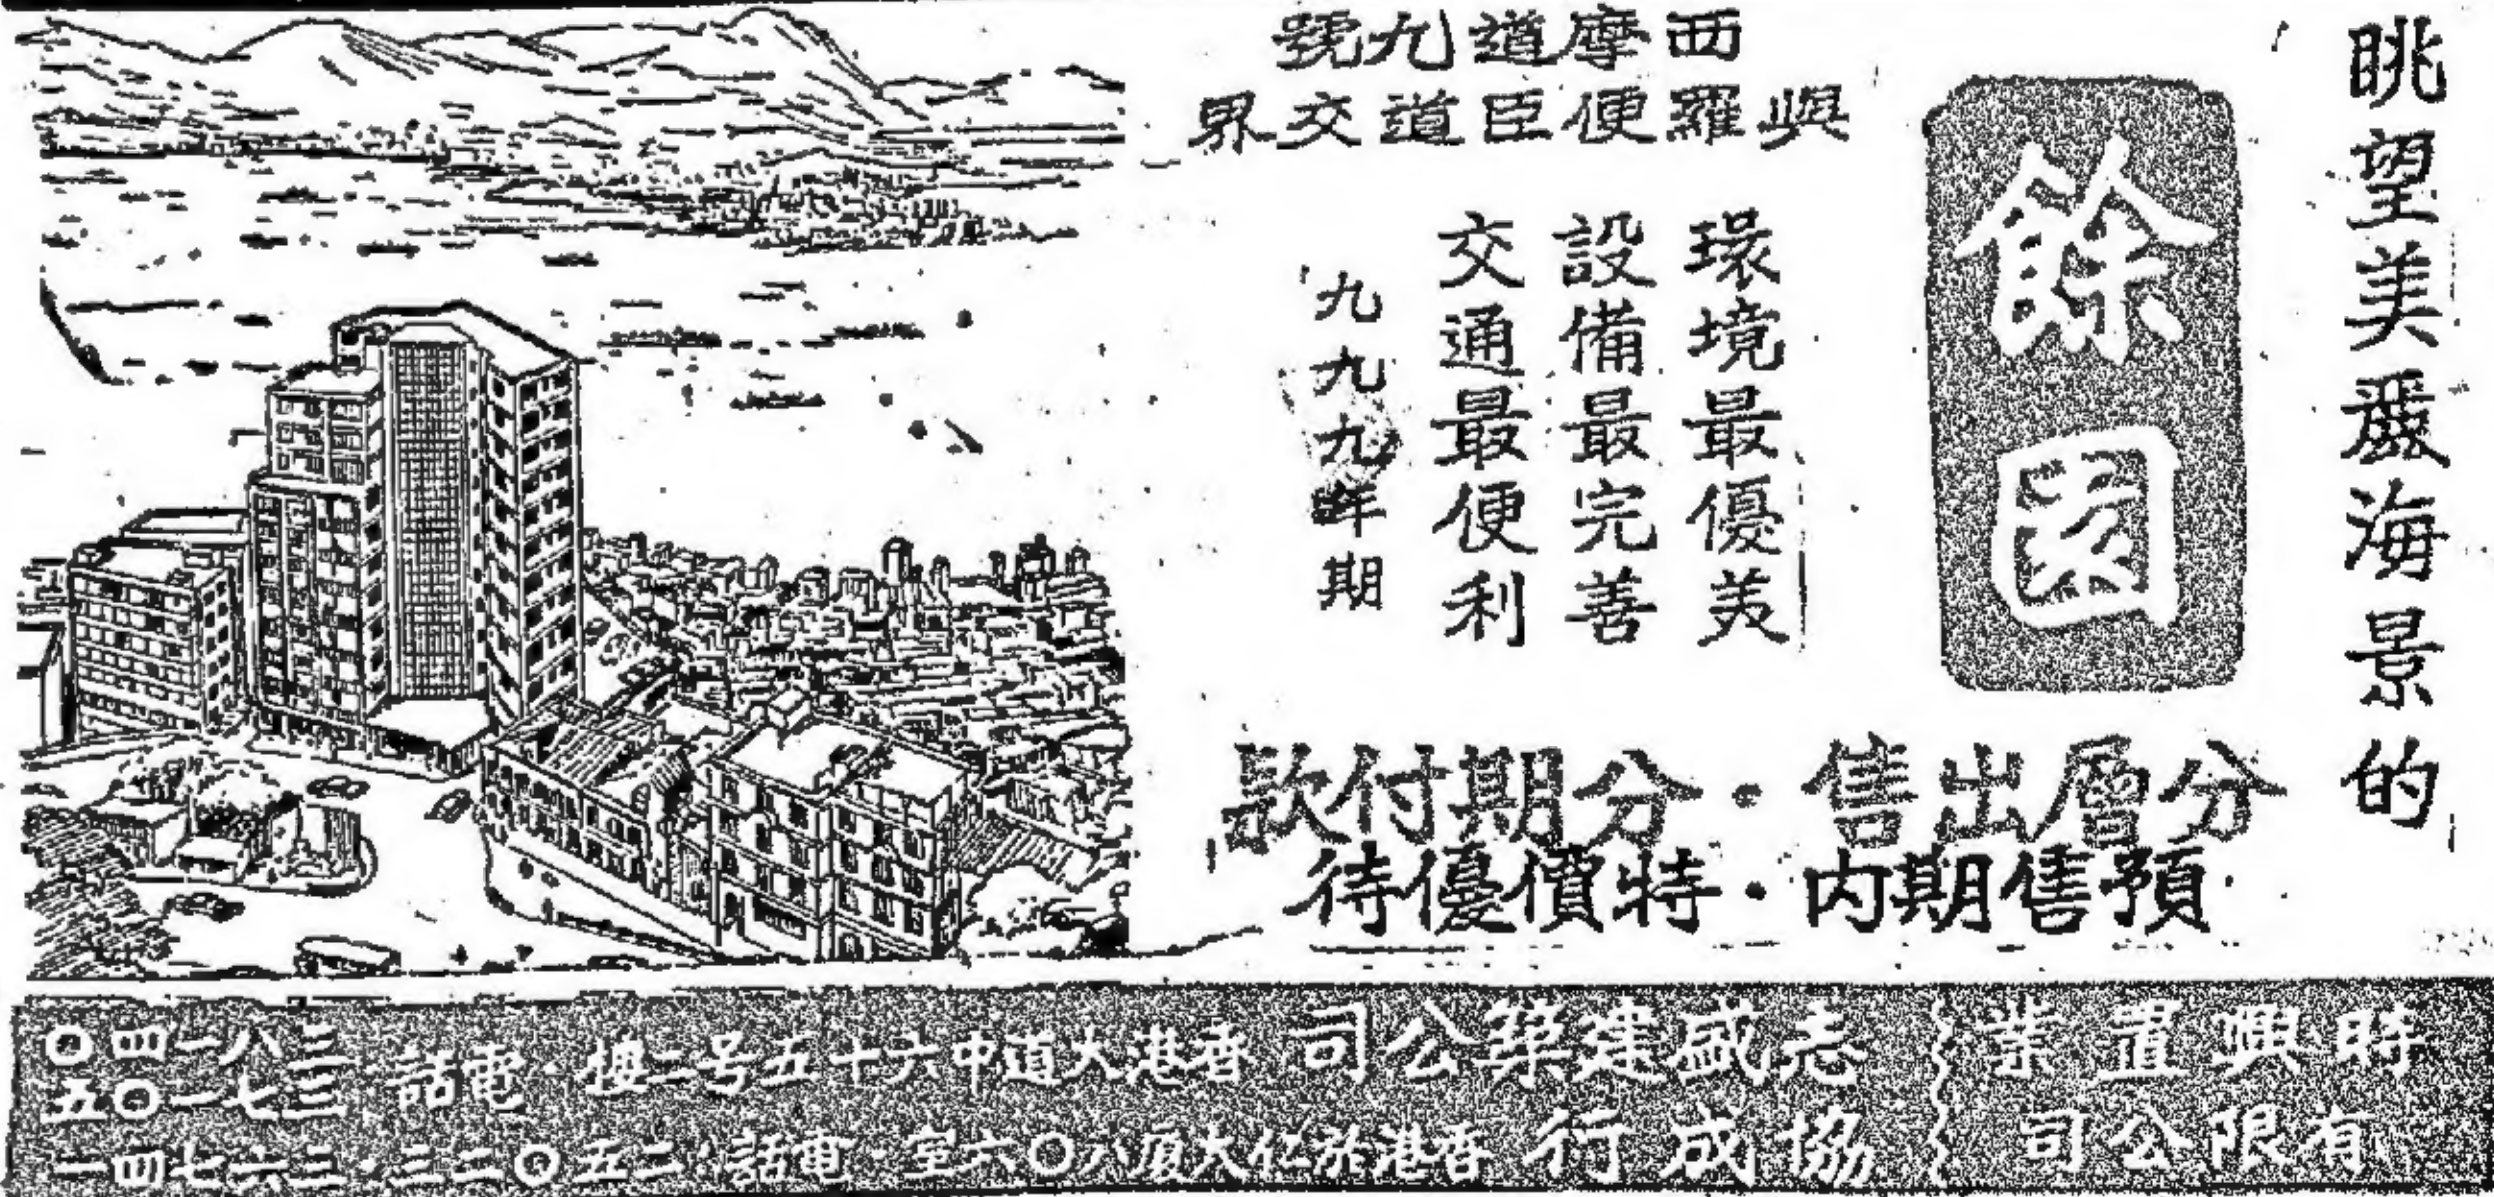 眺望美麗海景的
餘園
西摩道九號
與羅便臣道交界
環境最優美
設備最完善
交通最便利
九九九年期
分層出售・分期付款
預售期內・特價優待
時興置業
有限公司
志盛建築公司 香港大道中六十五号二楼・電話 三八一四〇 三七一〇五
協成行 香港於仁大厦八〇六室・電話:二五〇二三・三六七四一